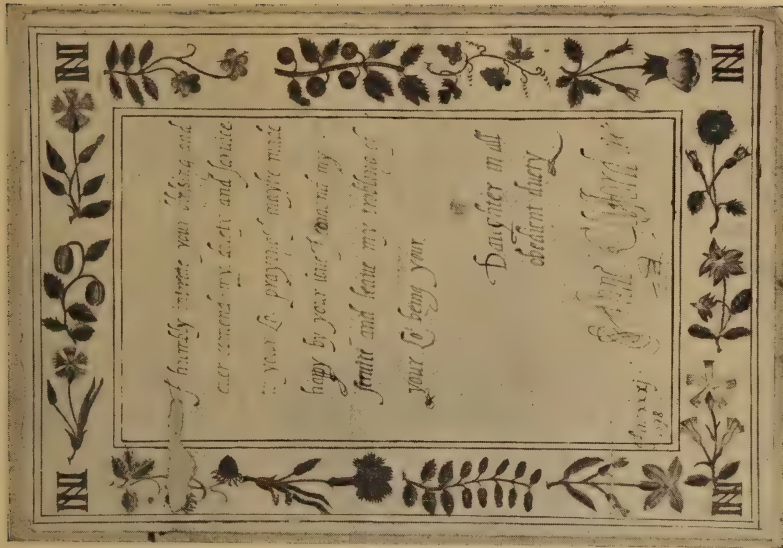 I humbly intreate your blessing and
ever comend my duety and service
to your Lp. prayenge I maye be made
happy by your love I comend my
service and leave my
your Lp. being your
Daughter in all
obedient duety
Anne Clifford
xxxj
1598